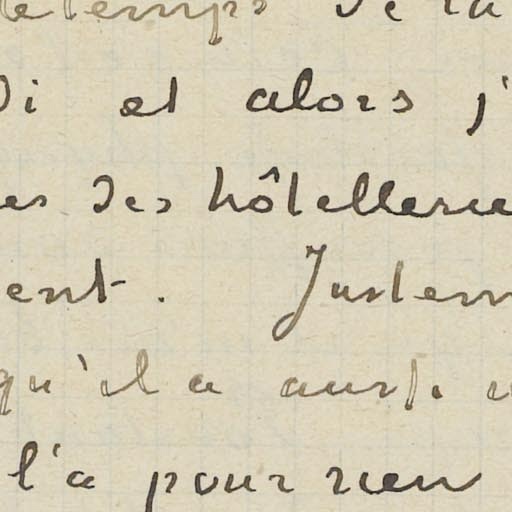 de la
di et alors j'
des hôtellerie
ent. Justem
qu'il a aussi
l'a pour rien